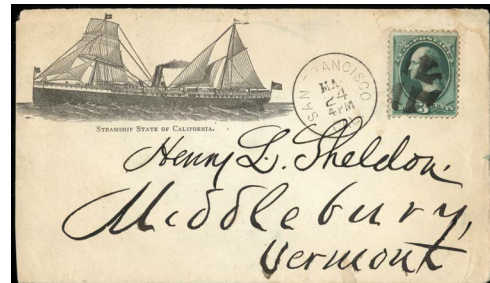 STEAMSHIP STATE OF CALIFORNIA.
SAN FRANCISCO
MAY
24
4 PM
Henry L. Sheldon.
Middlebury,
Vermont